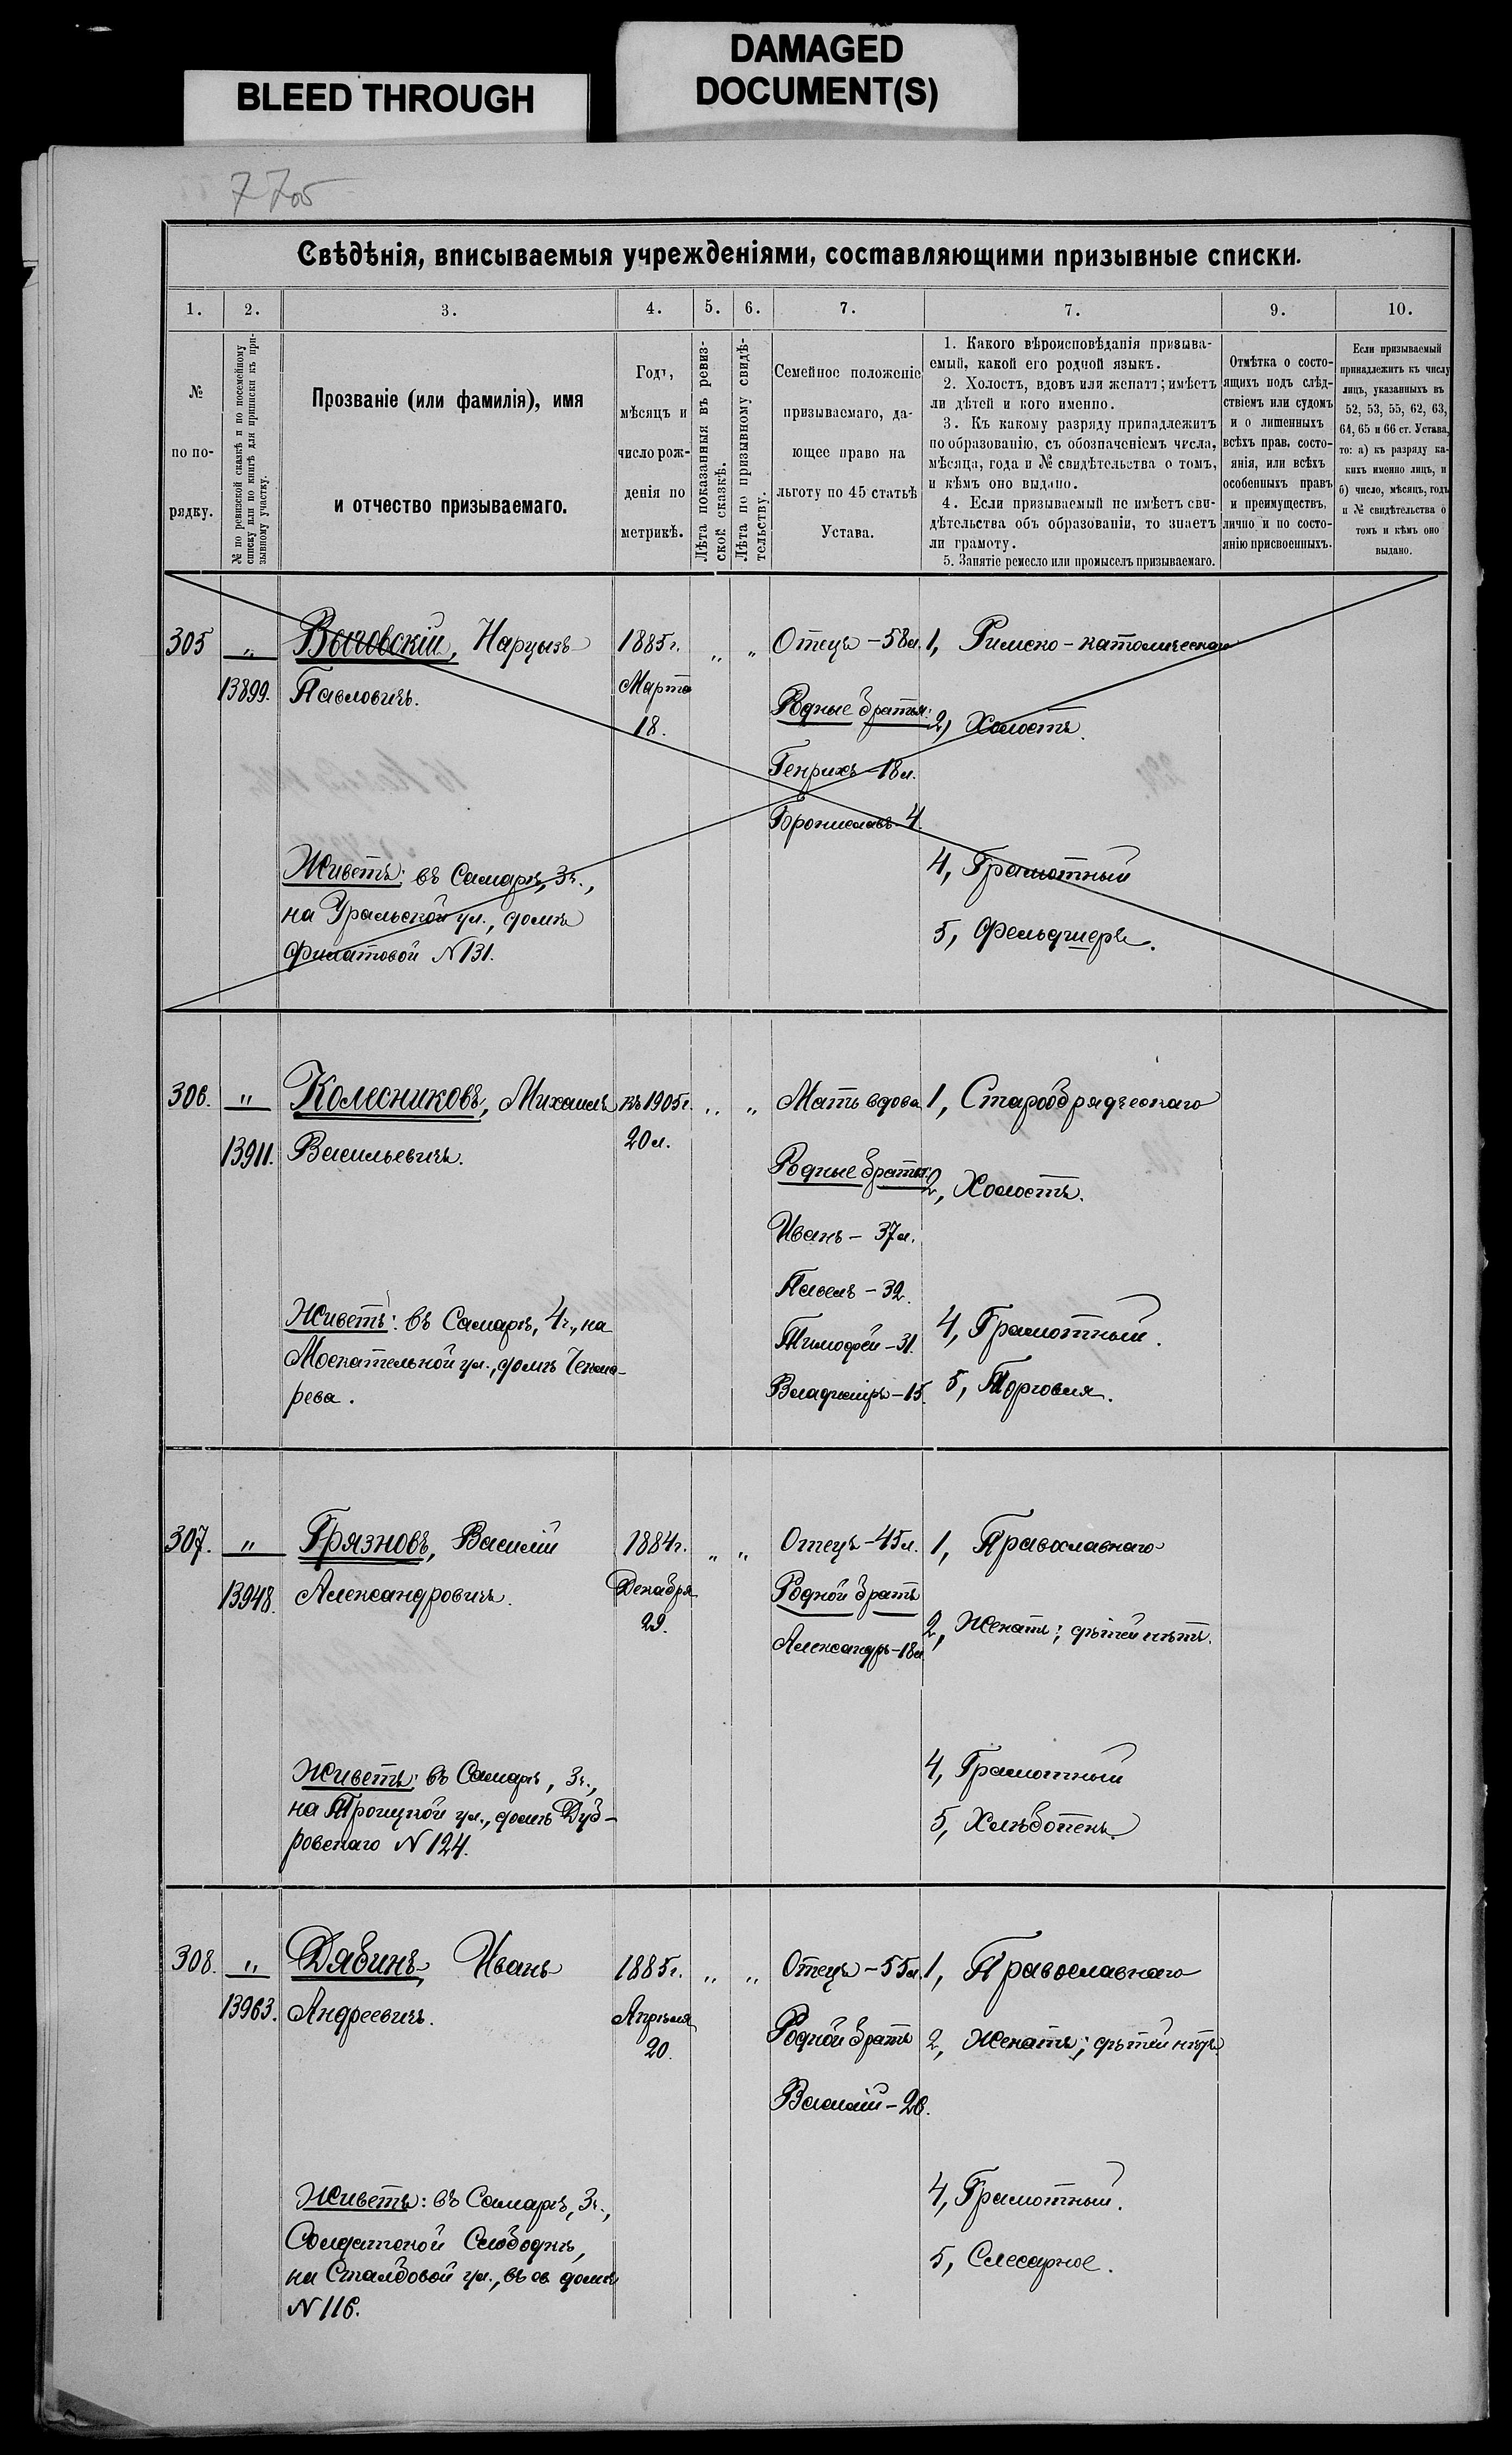 BLEED THROUGH
DAMAGED
DOCUMENT(S)
Свѣдѣнія, вписываемыя учрежденіями, составляющими призывные списки.
1.
2.
3.
4.
5.
6.
7.
7.
9.
10.
№
по по-
рядку.
№ по ревизской сказкѣ и по посемейному
списку или по книгѣ для приписки къ при-
зывному участку.
Прозваніе (или фамилія), имя
и отчество призываемаго.
Годъ,
мѣсяцъ и
число рож-
денія по
метрикѣ.
Лѣта показанныя въ ревиз-
ской сказкѣ.
Лѣта по призывному свидѣ-
тельству.
Семейное положеніе
призываемаго, да-
ющее право на
льготу по 45 статьѣ
Устава.
1. Какого вѣроисповѣданія призыва-
емый, какой его родной языкъ.
2. Холостъ, вдовъ или женатъ; имѣетъ
ли дѣтей и кого именно.
3. Къ какому разряду принадлежитъ
по образованію, съ обозначеніемъ числа,
мѣсяца, года и № свидѣтельства о томъ,
и кѣмъ оно выдано.
4. Если призываемый не имѣетъ сви-
дѣтельства объ образованіи, то знаетъ
ли грамоту.
5. Занятіе ремесло или промыселъ призываемаго.
Отмѣтка о состо-
ящихъ подъ слѣд-
ствіемъ или судомъ
и о лишенныхъ
всѣхъ правъ состо-
янія, или всѣхъ
особенныхъ правъ
и преимуществъ,
лично и по состо-
янію присвоенныхъ.
Если призываемый
принадлежитъ къ числу
лицъ, указанныхъ въ
52, 53, 55, 62, 63,
64, 65 и 66 ст. Устава,
то: а) къ разряду ка-
кихъ именно лицъ, и
б) число, мѣсяцъ, годъ
и № свидѣтельства о
томъ и кѣмъ оно
выдано.
305
"
13899.
Выговскій, Нарцызъ
Павловичъ.
Живетъ: въ Самарѣ, 3ч.,
на Уральской ул., домъ
Филатовой N 131.
1885г.
Марта
18.
" "
Отецъ - 58л.
Родные братья:
Генрихъ - 18л.
Брониславъ - 4.
1, Римско-католическаго
2, Холостъ.
4, Грамотный
5, Фельдшеръ.
306.
"
13911.
Колесниковъ, Михаилъ
Васильевичъ.
Живетъ: въ Самарѣ, 4ч., на
Москательной ул., домъ
рева.
къ 1905г.
20л.
" "
Мать вдова
Родные братья:
Иванъ - 37л.
Павелъ - 32.
Тимофей - 31.
Владиміръ - 15.
1, Старообрядческаго
2, Холостъ.
4, Грамотный.
5, Торговля.
307.
"
13948.
Грязновъ, Василій
Александровичъ.
Живетъ: въ Самарѣ, 3ч.,
на Троицкой ул., домъ Дуб-
ровскаго N 124.
1884г.
Декабря
29.
" "
Отецъ - 45л.
Родной братъ
Александръ - 18л.
1, Православнаго
2, Женатъ; дѣтей нѣтъ.
4, Грамотный
5, Хлѣбопекъ.
308.
"
13963.
Дябинъ, Иванъ
Андреевичъ.
Живетъ: въ Самарѣ, 3ч.,
Солдатской Слободкѣ,
на ул., въ св. домѣ
N 116.
1885г.
Апрѣля
20.
" "
Отецъ - 55л.
Родной братъ
Василій - 26.
1, Православнаго
2, Женатъ; дѣтей нѣтъ.
4, Грамотный.
5, Слесарное.